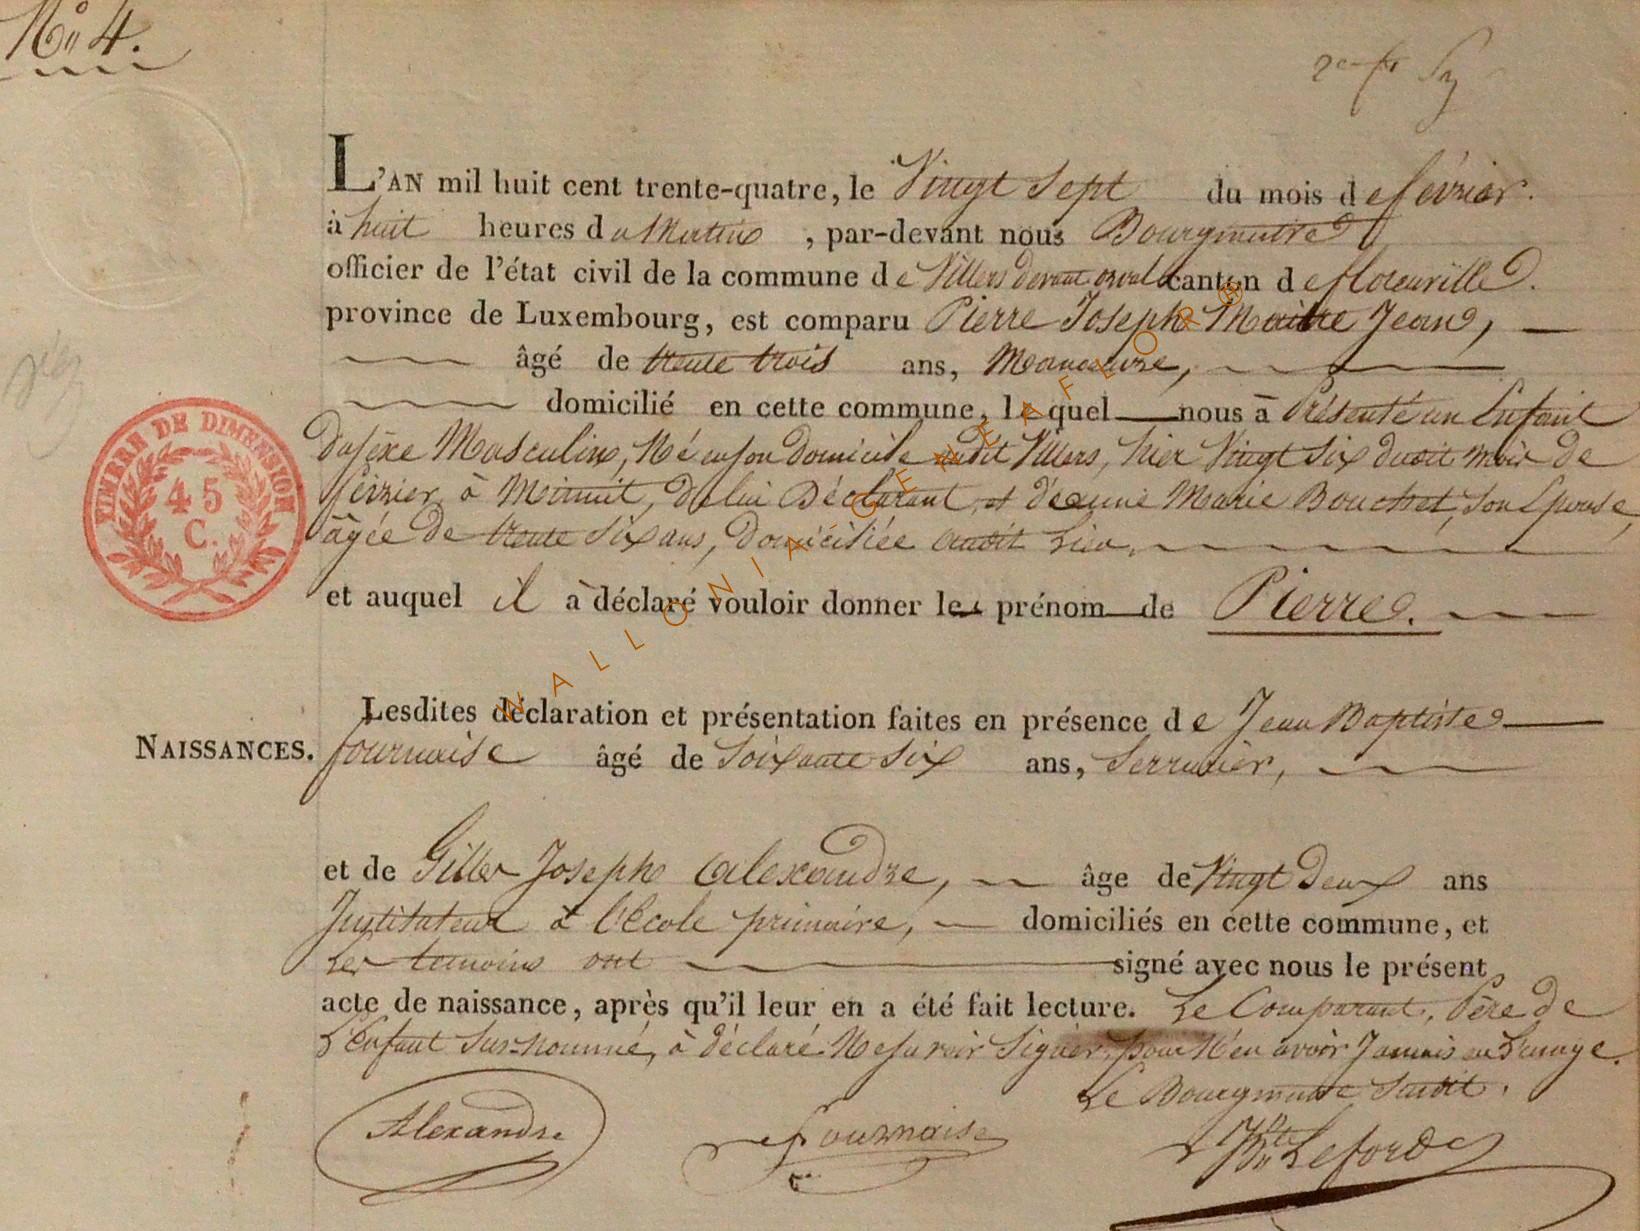 N° 4.
L'AN mil huit cent trente-quatre, le Vingt Sept du mois de février.
à huit heures du Matin, par-devant nous Bourgmestre
officier de l'état civil de la commune de Villers devant orval canton de florenville.
province de Luxembourg, est comparu Pierre Joseph Maitre Jean,
âgé de trente trois ans, Manoeuvre,
domicilié en cette commune, lequel nous à Présenté un Enfant
du sèxe Masculin, Né en son domicile audit Villers, hier Vingt Six dudit mois de
février, à Minuit, de lui Déclarant, et de Jeanne Marie Bouchet, Son Epouse,
âgée de trente Six ans, Domiciliée audit Lieu,
et auquel il à déclaré vouloir donner le prénom de Pierre.
Lesdites déclaration et présentation faites en présence de Jean Baptiste
NAISSANCES. fournaise âgé de Soixante Six ans, Serrurier,
et de Gilles Joseph Alexandre, âge de Vingt Deux ans
Instituteur à l'école primaire, domiciliés en cette commune, et
Les temoins ont signé avec nous le présent
acte de naissance, après qu'il leur en a été fait lecture. Le Comparant, Père de
L'Enfant Sus-nommé, à déclaré Ne savoir Signer, pour N'en avoir Jamais eu L'usage.
Le Bourgmestre Susdit.
Alexandre fournaise Leforde
TIMBRE DE DIMENSION
45
C.
WALLONIA-GENEAFLOR®